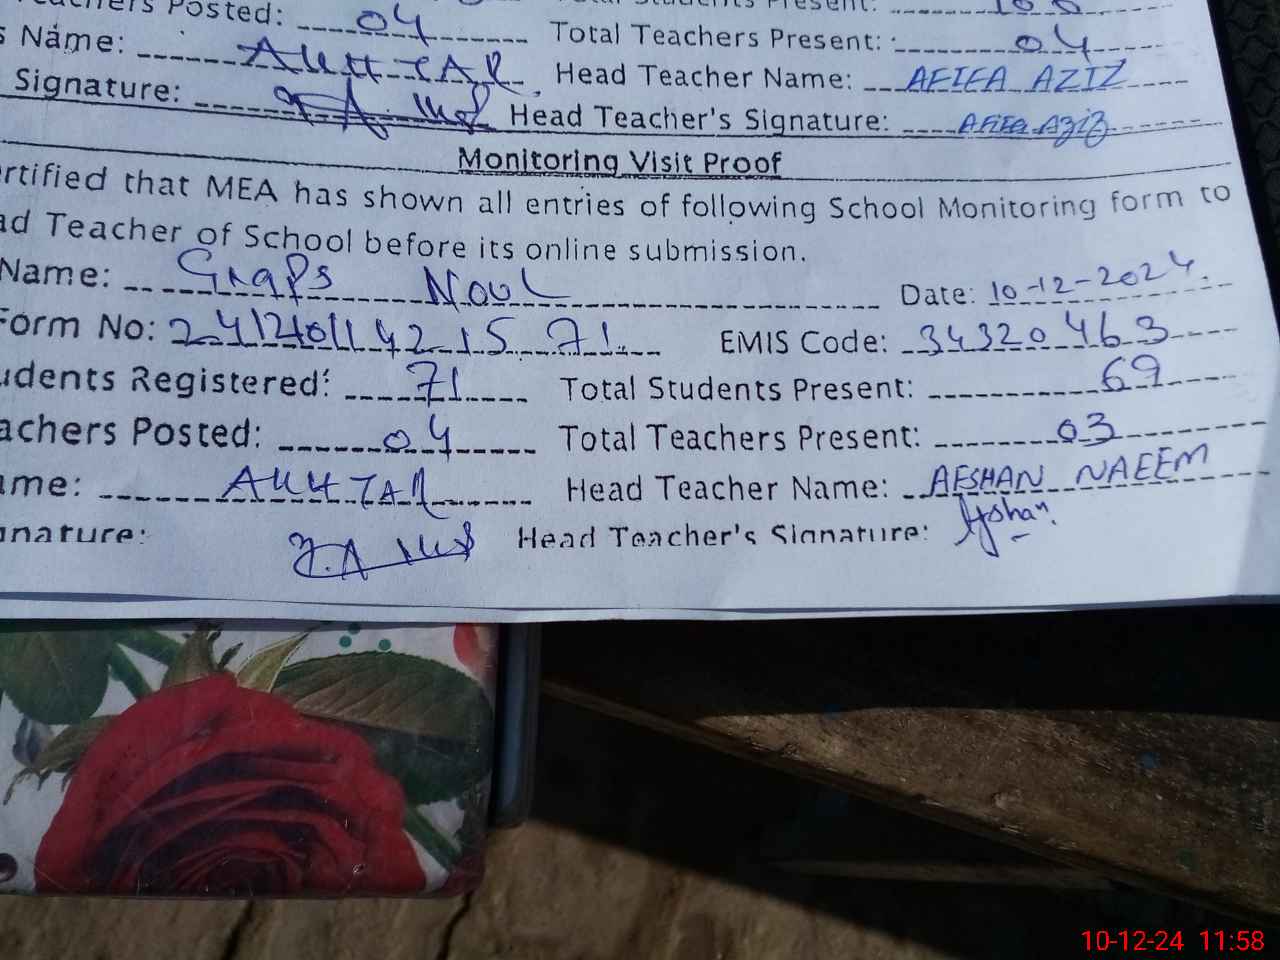 Teachers Posted: 04 Total Teachers Present: 04
s Name: AKHTAR Head Teacher Name: AFIFA AZIZ
Signature: Head Teacher's Signature: Afifa Aziz
Monitoring Visit Proof
ertified that MEA has shown all entries of following School Monitoring form to
ad Teacher of School before its online submission.
Name: GGPS Date: 10-12-2024
Form No: EMIS Code: 34320463
udents Registered: 71 Total Students Present: 69
achers Posted: 04 Total Teachers Present: 03
ame: AKHTAR Head Teacher Name: AFSHAN NAEEM
gnature: Head Teacher's Signature: Afshan
10-12-24 11:58